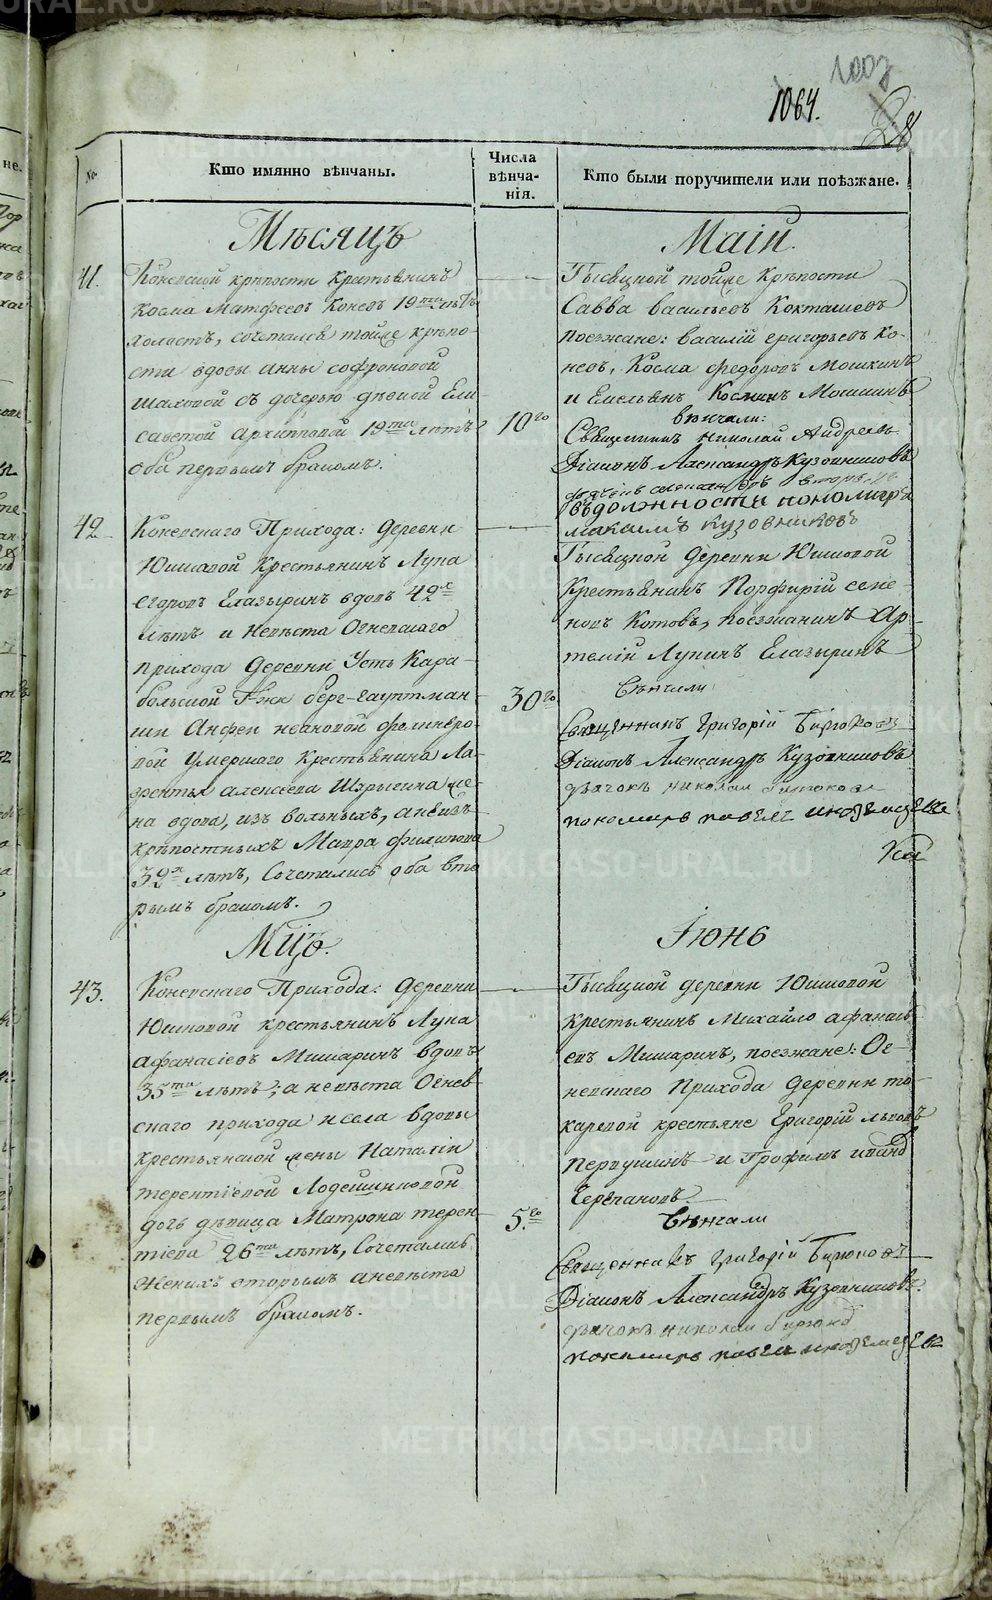 1007
1064.
28
№
Кто имянно вѣнчаны.
Числа вѣнча-нія.
Кто были поручители или поѣзжане.
Мѣсяцъ
Маій.
41.
Коневской крѣпости крестьянинъ
Косма Матфеевъ Коневъ 19ти лѣтъ
холостъ, сочетался тойже крѣпо-
сти вдовы Анны Софроновой
Шаховой съ дочерью дѣвкой Ели
саветой Архиповой 19ти лѣтъ
оба первымъ бракомъ.
10го
Тысяцкой тойже крѣпости
Савва Васильевъ Кокташевъ
поезжане: Василій Григорьевъ Ко-
невъ, Косма Федоровъ Мошкинъ
и Емельянъ Космин Мошкинъ
вѣнчали:
Священникъ Николай Андреевъ
Діаконъ Александръ Кузовниковъ
въ должности пономаря
Максимъ Кузовниковъ
42
Коневскаго Прихода: деревни
Юшковой крестьянинъ Лупа
Егоровъ Глазыринъ вдовъ 42х
лѣтъ и невѣста Огневскаго
прихода деревни Усть Кара-
больской Гжи берг-гауптман-
ши Анфеи Ивановой
вой умершаго крестьянина Ла-
врентья Алексѣева же-
на вдова, изъ вольныхъ, а не изъ
крѣпостныхъ Мавра Филипова
32х лѣтъ, Сочетались оба вто
рымъ бракомъ.
30го
Тысяцкой деревни Юшковой
Крестьянинъ Порфирій Семе-
новъ Котовъ, поезжанинъ Ар-
темій Лупинъ Глазыринъ
Вѣнчали
Священникъ Григорій Бирюковъ
Діаконъ Александръ Кузовниковъ
дьячокъ Николай Бирюковъ
пономарь Павелъ Иноземцевъ
Мцъ.
Іюнь
43.
Коневскаго Прихода: деревни
Юшковой крестьянинъ Лупа
Афанасіевъ Мишаринъ вдовъ
35ти лѣтъ; а невѣста Огнев
скаго прихода и села вдовы
крестьянской жены Наталіи
Терентіевой Лодейщиковой
дочь дѣвица Матрона Терен
тіева 26ти лѣтъ, Сочетались
Женихъ вторымъ а невѣста
первымъ бракомъ.
5го
Тысяцкой деревни Юшковой
крестьянинъ Михайло Афанась
евъ Мишаринъ, поезжане: Ог-
невскаго Прихода деревни То-
каревой крестьяне Григорій Львовъ
Первушинъ и Трофимъ
Черепановъ
Вѣнчали
Священникъ Григорій Бирюковъ
Діаконъ Александръ Кузовниковъ
дьячокъ Николай Бирюков
пономарь Павелъ Иноземцевъ
METRIKI.GASO-URAL.RU